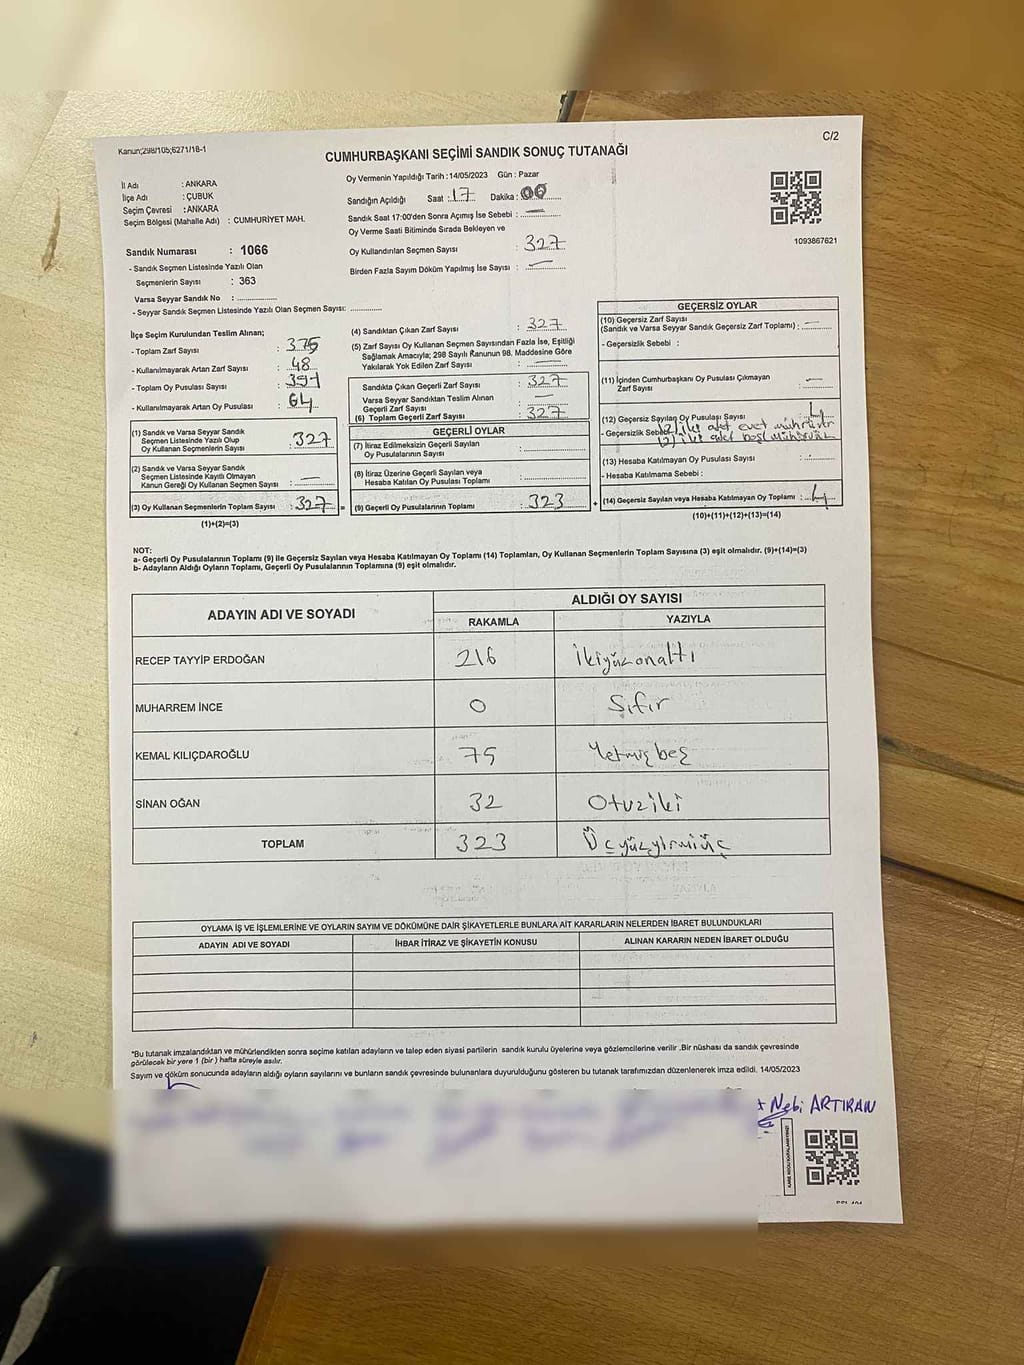 Kanun;298/105;6271/18-1
C/2
CUMHURBAŞKANI SEÇİMİ SANDIK SONUÇ TUTANAĞI
İl Adı : ANKARA
İlçe Adı : ÇUBUK
Seçim Çevresi : ANKARA
Seçim Bölgesi (Mahalle Adı) : CUMHURİYET MAH.
Oy Vermenin Yapıldığı Tarih : 14/05/2023 Gün : Pazar
Sandığın Açıldığı Saat : 17 Dakika : 00
Sandık Saat 17:00'den Sonra Açımış İse Sebebi :
Oy Verme Saati Bitiminde Sırada Bekleyen ve
Oy Kullandırılan Seçmen Sayısı : 327
Birden Fazla Sayım Döküm Yapılmış İse Sayısı : —
1093867621
Sandık Numarası : 1066
- Sandık Seçmen Listesinde Yazılı Olan
Seçmenlerin Sayısı : 363
Varsa Seyyar Sandık No :
- Seyyar Sandık Seçmen Listesinde Yazılı Olan Seçmen Sayısı:
İlçe Seçim Kurulundan Teslim Alınan;
- Toplam Zarf Sayısı : 375
- Kullanılmayarak Artan Zarf Sayısı : 48
- Toplam Oy Pusulası Sayısı : 391
- Kullanılmayarak Artan Oy Pusulası : 64
(1) Sandık ve Varsa Seyyar Sandık
Seçmen Listesinde Yazılı Olup
Oy Kullanan Seçmenlerin Sayısı : 327
(2) Sandık ve Varsa Seyyar Sandık
Seçmen Listesinde Kayıtlı Olmayan
Kanun Gereği Oy Kullanan Seçmen Sayısı : —
(3) Oy Kullanan Seçmenlerin Toplam Sayısı : 327 =
(1)+(2)=(3)
(4) Sandıktan Çıkan Zarf Sayısı : 327
(5) Zarf Sayısı Oy Kullanan Seçmen Sayısından Fazla İse, Eşitliği
Sağlamak Amacıyla; 298 Sayılı Kanunun 98. Maddesine Göre
Yakılarak Yok Edilen Zarf Sayısı : —
Sandıkta Çıkan Geçerli Zarf Sayısı : 327
Varsa Seyyar Sandıktan Teslim Alınan
Geçerli Zarf Sayısı : —
(6) Toplam Geçerli Zarf Sayısı : 327
GEÇERLİ OYLAR
(7) İtiraz Edilmeksizin Geçerli Sayılan
Oy Pusulalarının Sayısı :
(8) İtiraz Üzerine Geçerli Sayılan veya
Hesaba Katılan Oy Pusulası Toplamı :
(9) Geçerli Oy Pusulalarının Toplamı : 323 +
GEÇERSİZ OYLAR
(10) Geçersiz Zarf Sayısı
(Sandık ve Varsa Seyyar Sandık Geçersiz Zarf Toplamı) : —
- Geçersizlik Sebebi :
(11) İçinden Cumhurbaşkanı Oy Pusulası Çıkmayan
Zarf Sayısı : —
(12) Geçersiz Sayılan Oy Pusulası Sayısı : 4
- Geçersizlik Sebebi : (2) iki adet evet mühürlüdür
(2) iki adet boş mühürsüz
(13) Hesaba Katılmayan Oy Pusulası Sayısı :
- Hesaba Katılmama Sebebi :
(14) Geçersiz Sayılan veya Hesaba Katılmayan Oy Toplamı : 4
(10)+(11)+(12)+(13)=(14)
NOT:
a- Geçerli Oy Pusulalarının Toplamı (9) ile Geçersiz Sayılan veya Hesaba Katılmayan Oy Toplamı (14) Toplamları, Oy Kullanan Seçmenlerin Toplam Sayısına (3) eşit olmalıdır. (9)+(14)=(3)
b- Adayların Aldığı Oyların Toplamı, Geçerli Oy Pusulalarının Toplamına (9) eşit olmalıdır.
ADAYIN ADI VE SOYADI ALDIĞI OY SAYISI
RAKAMLA YAZIYLA
RECEP TAYYİP ERDOĞAN 216 İkiyüzonaltı
MUHARREM İNCE 0 Sıfır
KEMAL KILIÇDAROĞLU 75 Yetmişbeş
SİNAN OĞAN 32 Otuziki
TOPLAM 323 Üçyüzyirmiüç
OYLAMA İŞ VE İŞLEMLERİNE VE OYLARIN SAYIM VE DÖKÜMÜNE DAİR ŞİKAYETLERLE BUNLARA AİT KARARLARIN NELERDEN İBARET BULUNDUKLARI
ADAYIN ADI VE SOYADI İHBAR İTİRAZ VE ŞİKAYETİN KONUSU ALINAN KARARIN NEDEN İBARET OLDUĞU
*Bu tutanak imzalandıktan ve mühürlendikten sonra seçime katılan adayların ve talep eden siyasi partilerin sandık kurulu üyelerine veya gözlemcilerine verilir .Bir nüshası da sandık çevresinde
görülecek bir yere 1 (bir) hafta süreyle asılır.
Sayım ve döküm sonucunda adayların aldığı oyların sayılarını ve bunların sandık çevresinde bulunanlara duyurulduğunu gösteren bu tutanak tarafımızdan düzenlenerek imza edildi. 14/05/2023
Nebi ARTIRAN